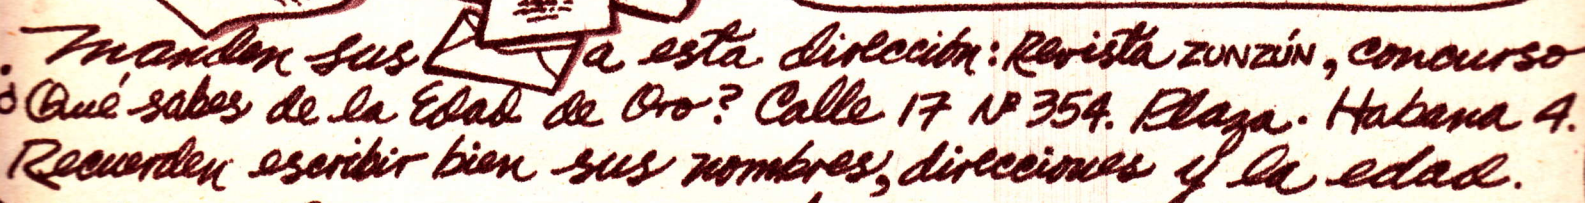 Manden sus a esta dirección: Revista ZUNZÚN, concurso
¿Qué sabes de la Edad de Oro? Calle 17 Nº 354. Plaza. Habana 4.
Recuerden escribir bien sus nombres, direcciones y la edad.